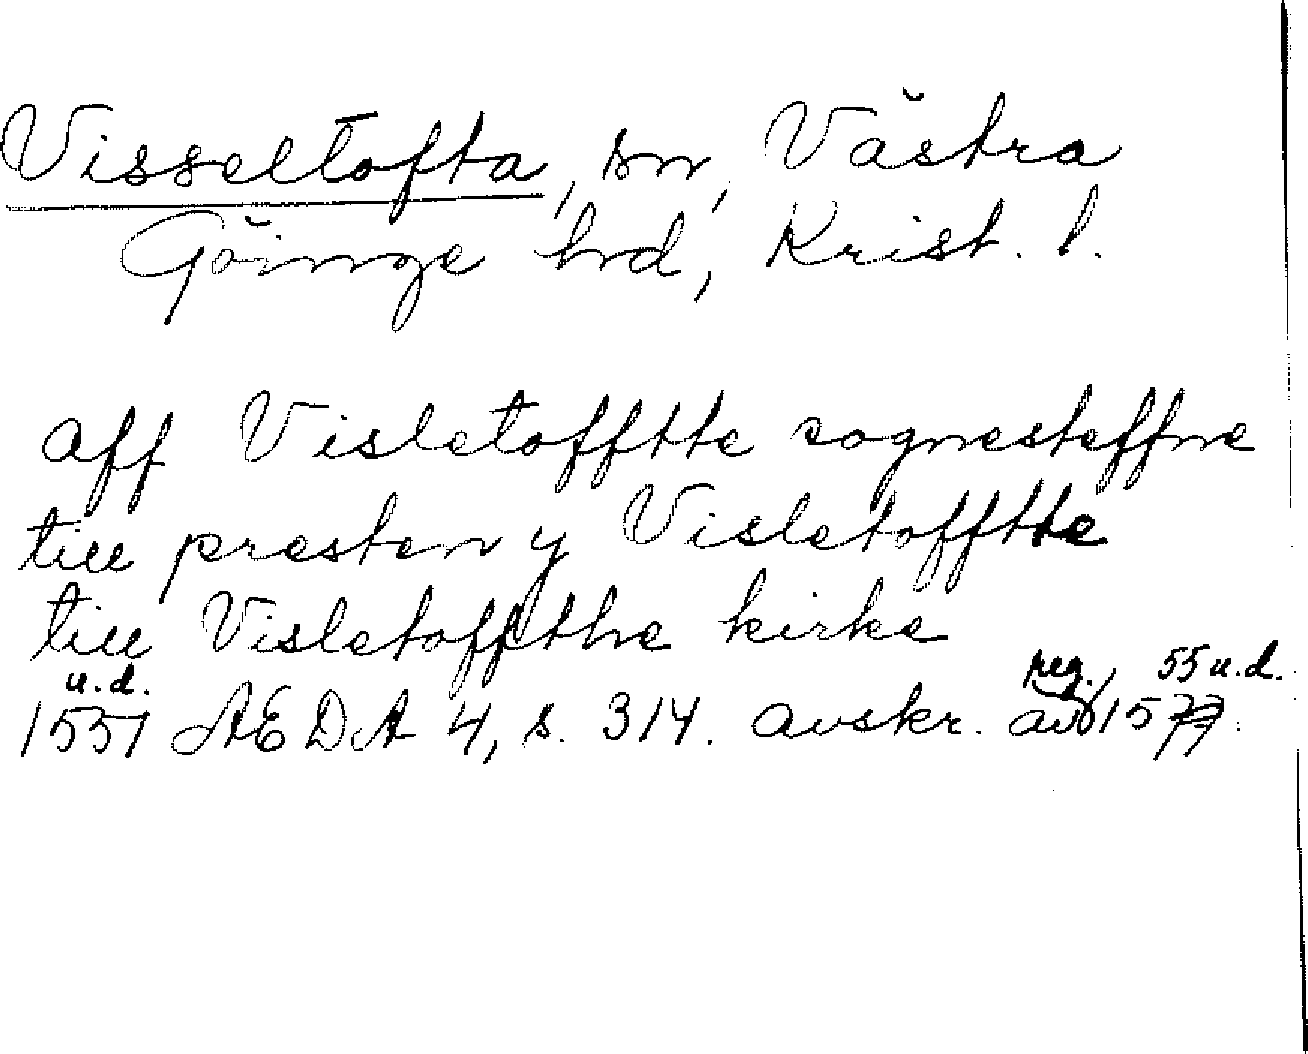 Visseltofta, sn, Västra
Göinge hd, Krist. l.
aff Visletofftte sognesteffne
till presten y Visletofftte
till Visletoffthe kirke
u.d. reg. 55 u.d.
1551 AEDA 4, s. 314. avskr. av 1577.